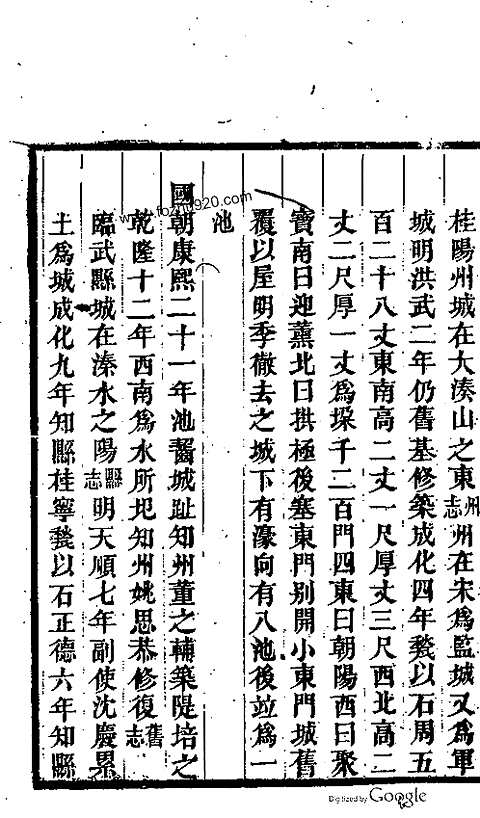 桂陽州城在大湊山之東州志州在宋爲監城又爲軍
城明洪武二年仍舊基修築成化四年甃以石周五
百二十八丈東南高二丈一尺厚丈三尺西北高二
丈二尺厚一丈爲垜千二百門四東曰朝陽西曰聚
寳南曰迎薰北曰拱極後塞東門別開小東門城舊
覆以屋明季徹去之城下有濠向有八池後竝爲一
池
國朝康熙二十一年池齧城趾知州董之輔築隄培之
乾隆十二年西南爲水所圯知州姚思恭修復舊志
臨武縣城在溱水之陽縣志明天順七年副使沈慶累
土爲城成化九年知縣桂寧甃以石正德六年知縣
www.foziyi920.com
Digitized by Google